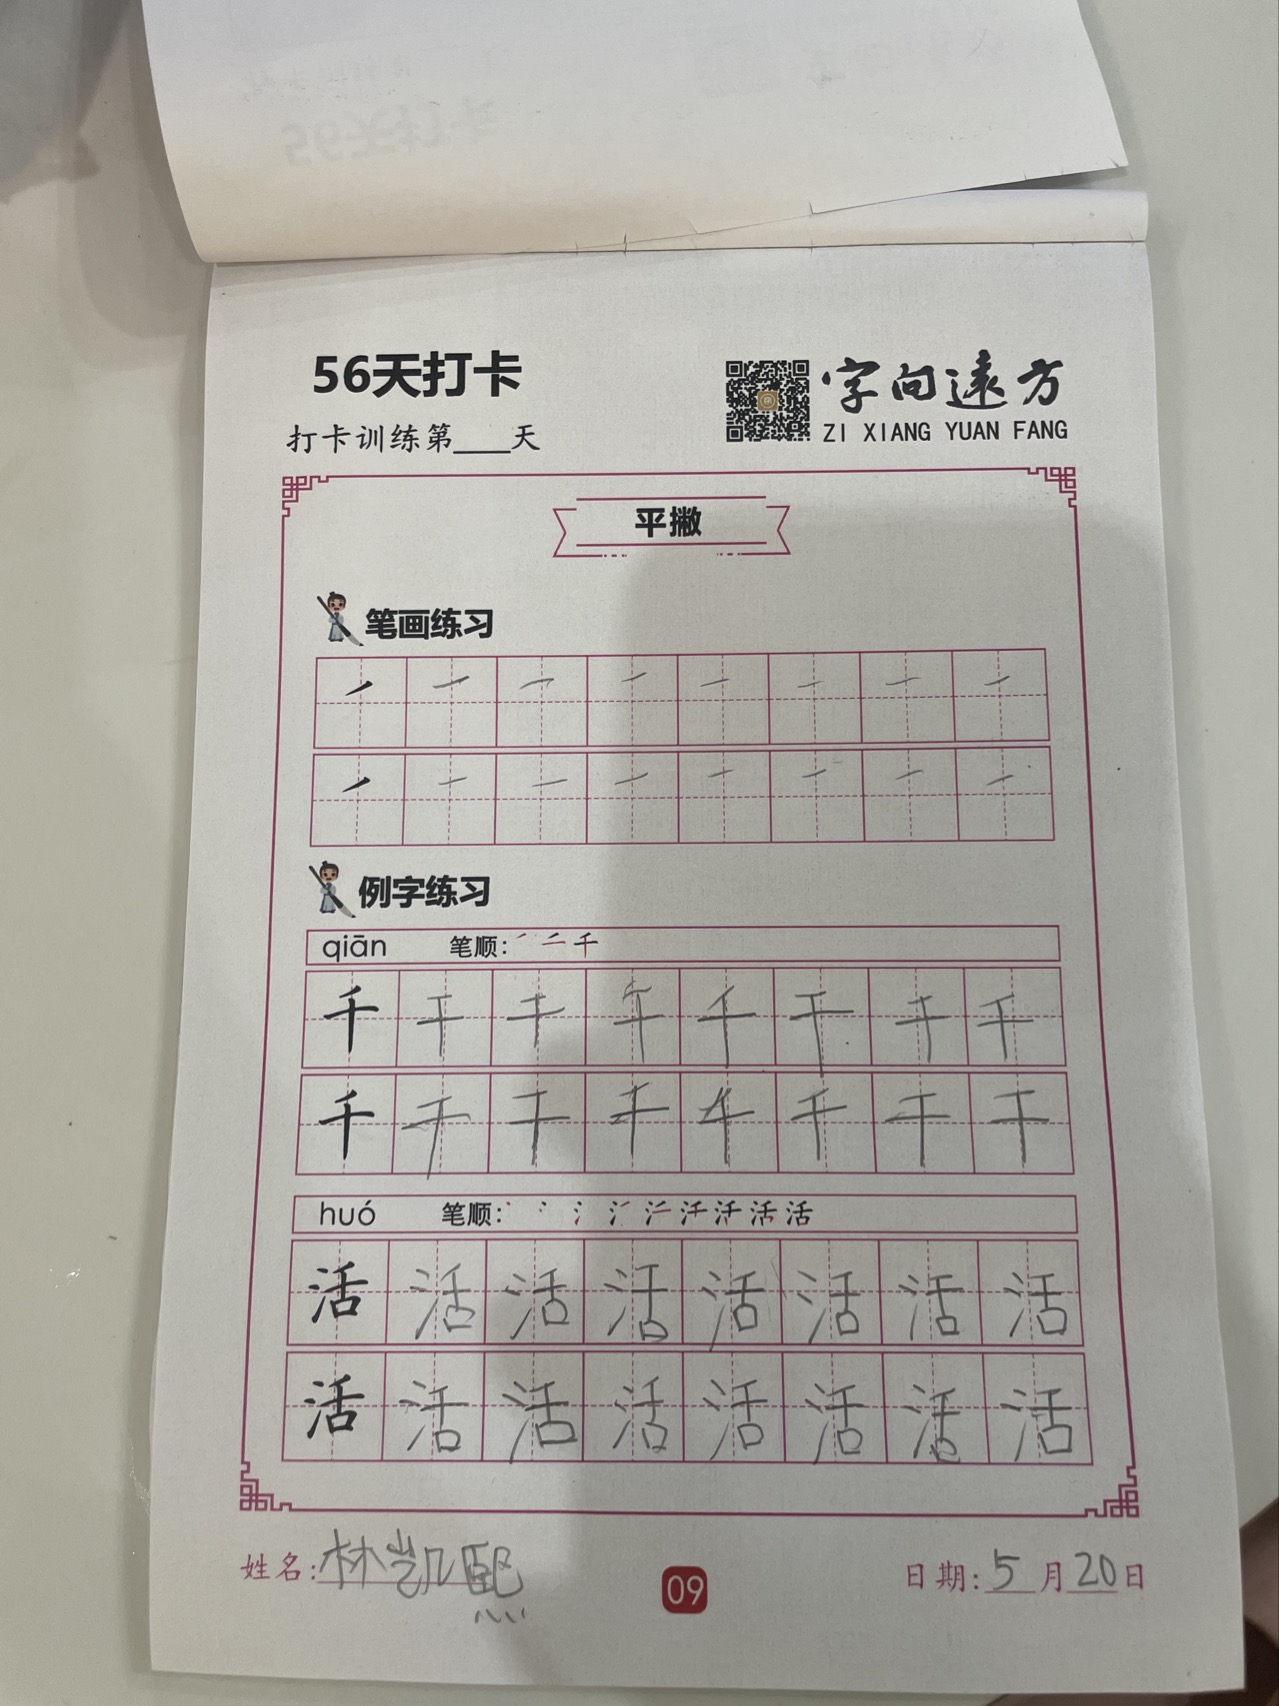 56天打卡
字向遠方
打卡训练第___天
ZI XIANG YUAN FANG
平撇
笔画练习
例字练习
qiān 笔顺: 千
千 千 千 千 千 千 千 千
千 千 千 千 千 千 千 千
huó 笔顺: 活
活 活 活 活 活 活 活 活
活 活 活 活 活 活 活 活
姓名: 林凯熙
09
日期: 5月20日